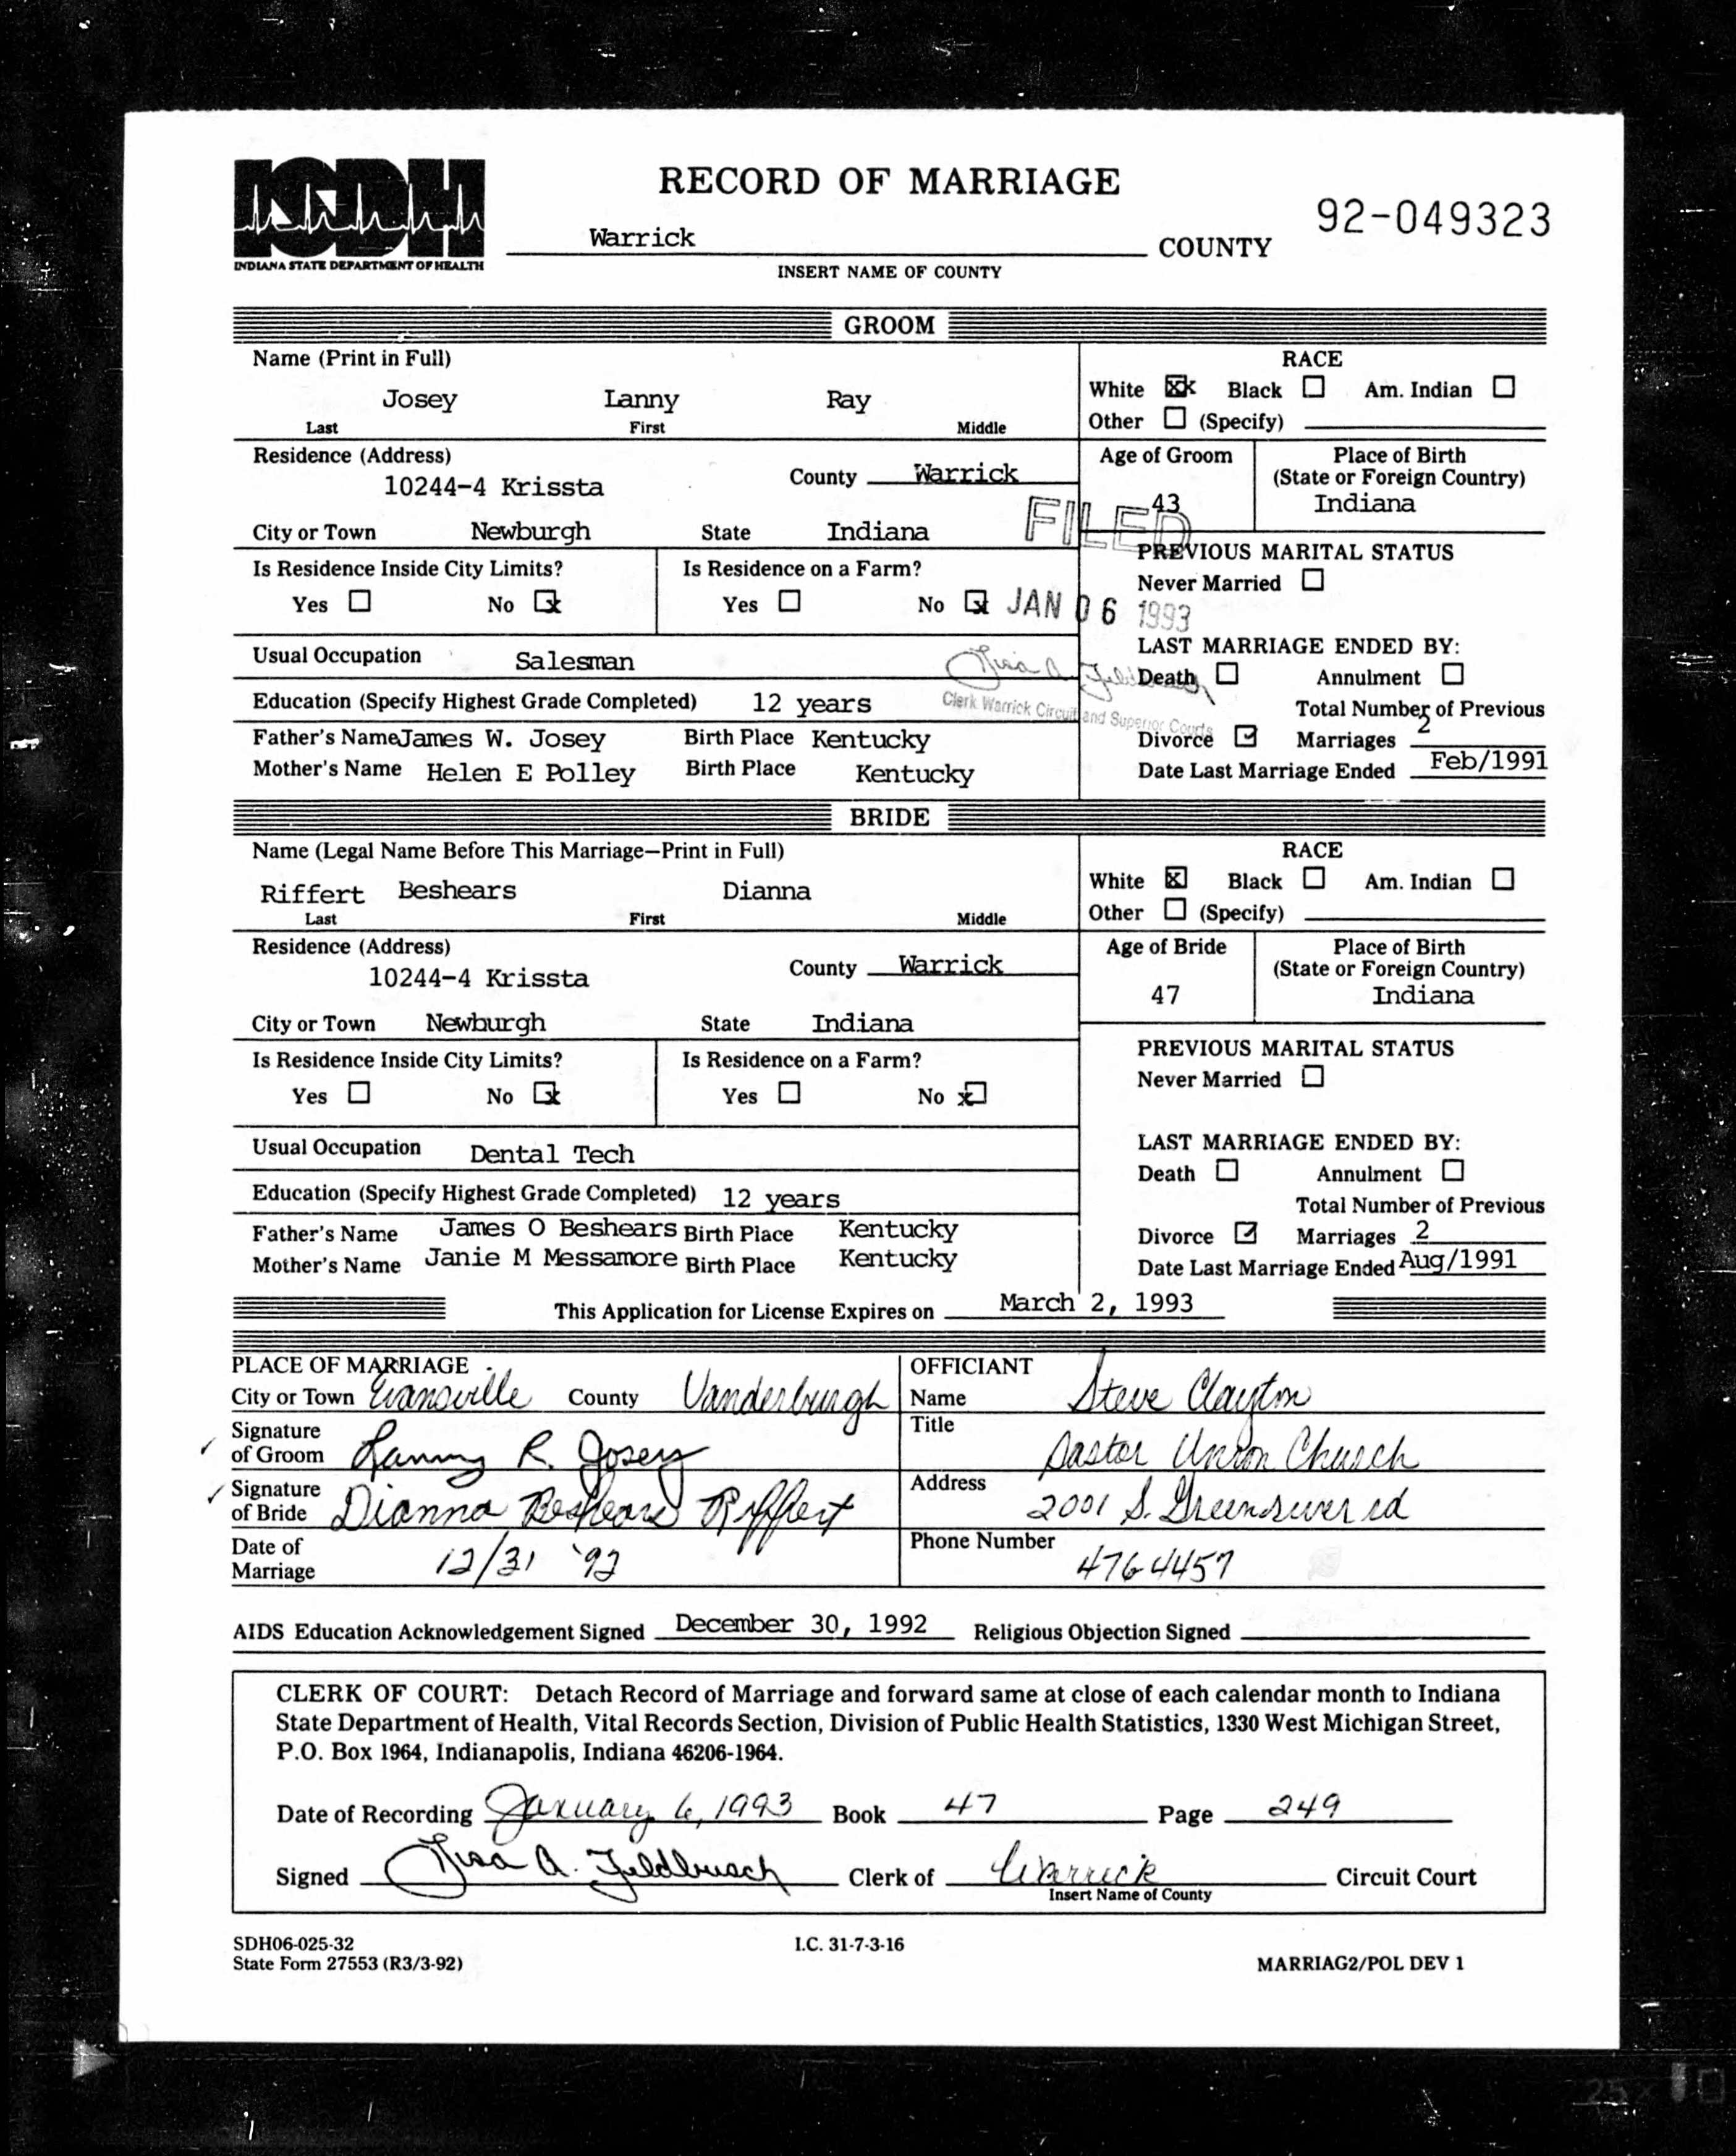 RECORD OF MARRIAGE
92-049323
Warrick COUNTY
INSERT NAME OF COUNTY
ISDH
INDIANA STATE DEPARTMENT OF HEALTH
GROOM
Name (Print in Full)
Josey Lanny Ray
Last First Middle
RACE
White Black Am. Indian
Other (Specify)
Residence (Address)
10244-4 Krissta
County Warrick
City or Town Newburgh State Indiana
Age of Groom
43
Place of Birth
(State or Foreign Country)
Indiana
FILED
JAN 06 1993
Lisa A. Feldbusch
Clerk Warrick Circuit and Superior Courts
Is Residence Inside City Limits?
Yes No x
Is Residence on a Farm?
Yes No x
PREVIOUS MARITAL STATUS
Never Married
Usual Occupation Salesman
Education (Specify Highest Grade Completed) 12 years
Father's Name James W. Josey Birth Place Kentucky
Mother's Name Helen E Polley Birth Place Kentucky
LAST MARRIAGE ENDED BY:
Death Annulment
Total Number of Previous
Divorce Marriages 2
Date Last Marriage Ended Feb/1991
BRIDE
Name (Legal Name Before This Marriage—Print in Full)
Riffert Beshears Dianna
Last First Middle
RACE
White Black Am. Indian
Other (Specify)
Residence (Address)
10244-4 Krissta
County Warrick
City or Town Newburgh State Indiana
Age of Bride
47
Place of Birth
(State or Foreign Country)
Indiana
Is Residence Inside City Limits?
Yes No x
Is Residence on a Farm?
Yes No x
PREVIOUS MARITAL STATUS
Never Married
Usual Occupation Dental Tech
Education (Specify Highest Grade Completed) 12 years
Father's Name James O Beshears Birth Place Kentucky
Mother's Name Janie M Messamore Birth Place Kentucky
LAST MARRIAGE ENDED BY:
Death Annulment
Total Number of Previous
Divorce Marriages 2
Date Last Marriage Ended Aug/1991
This Application for License Expires on March 2, 1993
PLACE OF MARRIAGE
City or Town Evansville County Vanderburgh
Signature
of Groom Lanny R. Josey
Signature
of Bride Dianna Beshears Riffert
Date of
Marriage 12/31 '92
OFFICIANT
Name Steve Clayton
Title
Pastor Union Church
Address
2001 S. Greenriver rd
Phone Number
476 4457
AIDS Education Acknowledgement Signed December 30, 1992 Religious Objection Signed
CLERK OF COURT: Detach Record of Marriage and forward same at close of each calendar month to Indiana
State Department of Health, Vital Records Section, Division of Public Health Statistics, 1330 West Michigan Street,
P.O. Box 1964, Indianapolis, Indiana 46206-1964.
Date of Recording January 6, 1993 Book 47 Page 249
Signed Lisa A. Feldbusch Clerk of Warrick Circuit Court
Insert Name of County
SDH06-025-32
State Form 27553 (R3/3-92)
I.C. 31-7-3-16
MARRIAG2/POL DEV 1